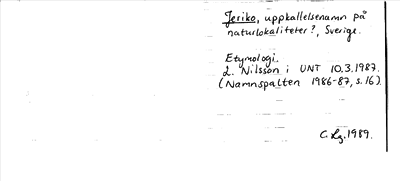 Jeriko, uppkallelsenamn på
naturlokaliteter?, Sverige.
Etymologi.
L. Nilsson i UNT 10.3.1987.
(Namnspalten 1986-87, s. 16).
C. Lg. 1989.